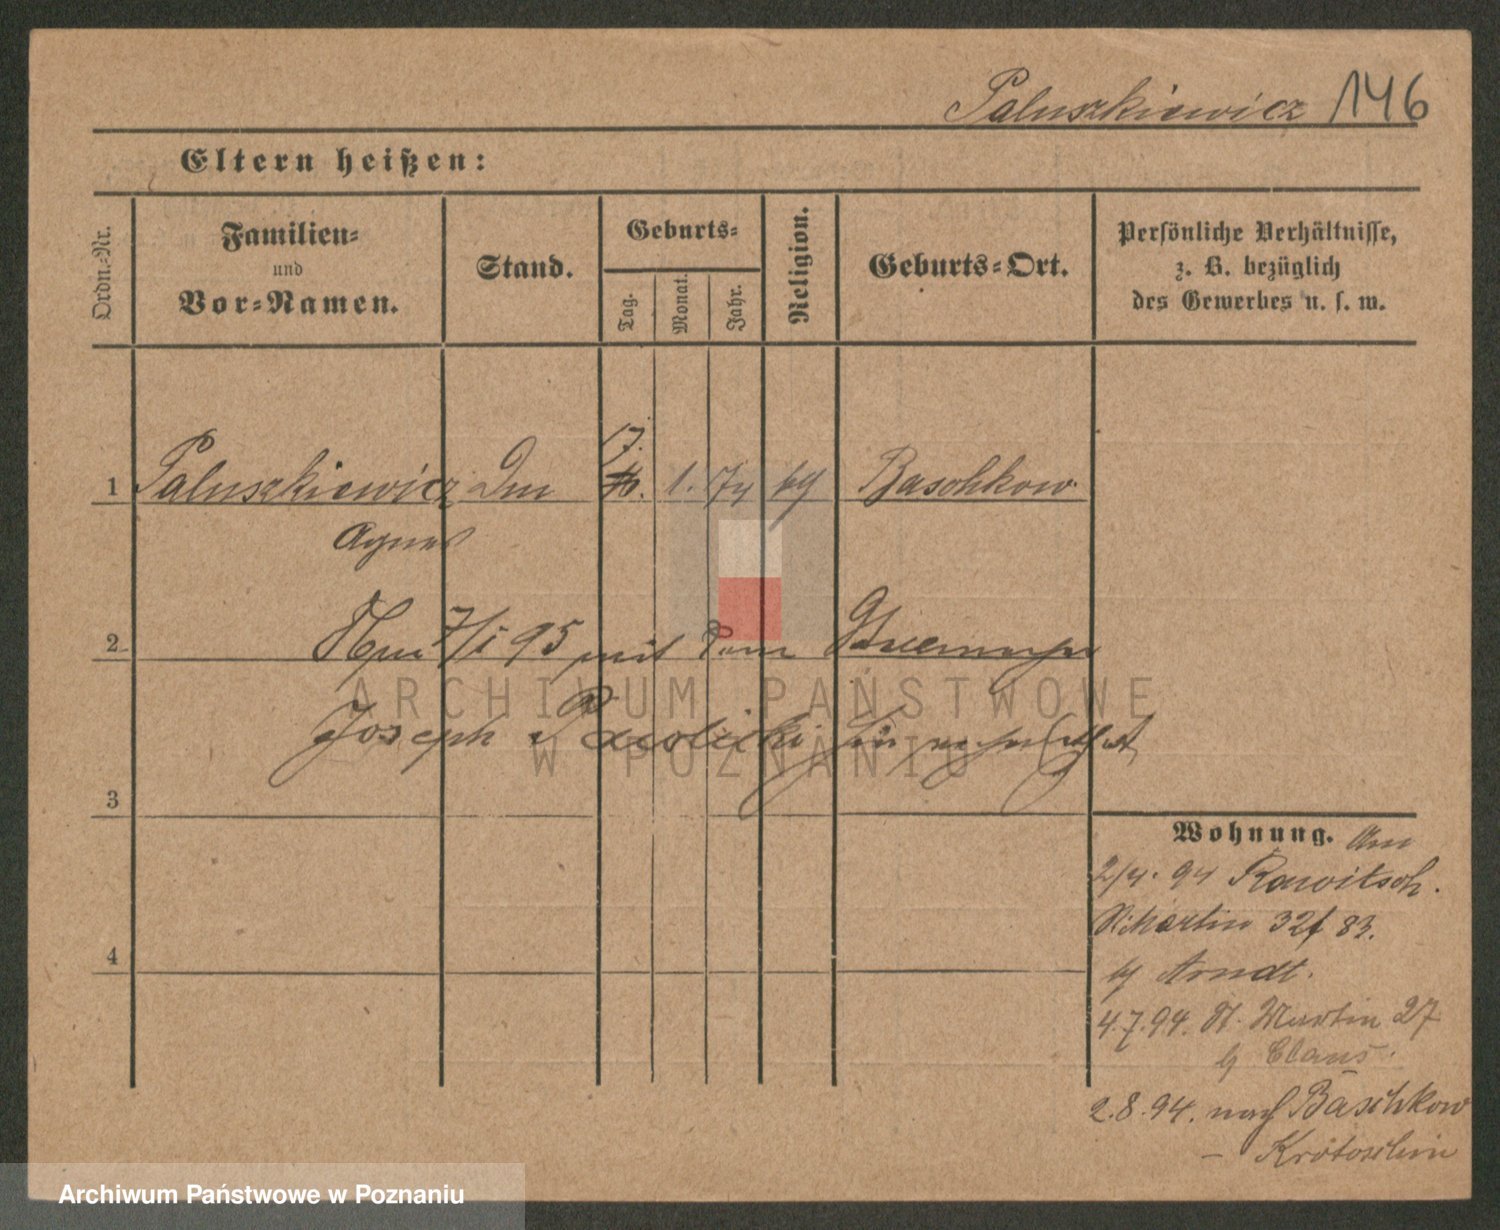 Paluszkiewicz 146
Eltern heißen:
Ordn.-Nr.
Familien-
und
Vor-Namen.
Stand.
Geburts-
Tag.
Monat.
Jahr.
Religion.
Geburts-Ort.
Persönliche Verhältnisse,
z. B. bezüglich
des Gewerbes u. s. w.
1 Paluszkiewicz 17. 1. 74 Baschkow
Agnes
2 7/1 95 mit dem
ARCHIWUM PAŃSTWOWE
Joseph
W POZNANIU
3
Wohnung. Am
2/4. 94 Rawitsch.
St. Martin 32 83.
b/ Arndt.
4
4.7.94. St. Martin 27
b/ Claus.
2.8.94. nach Baschkow
– Krotoschin
Archiwum Państwowe w Poznaniu